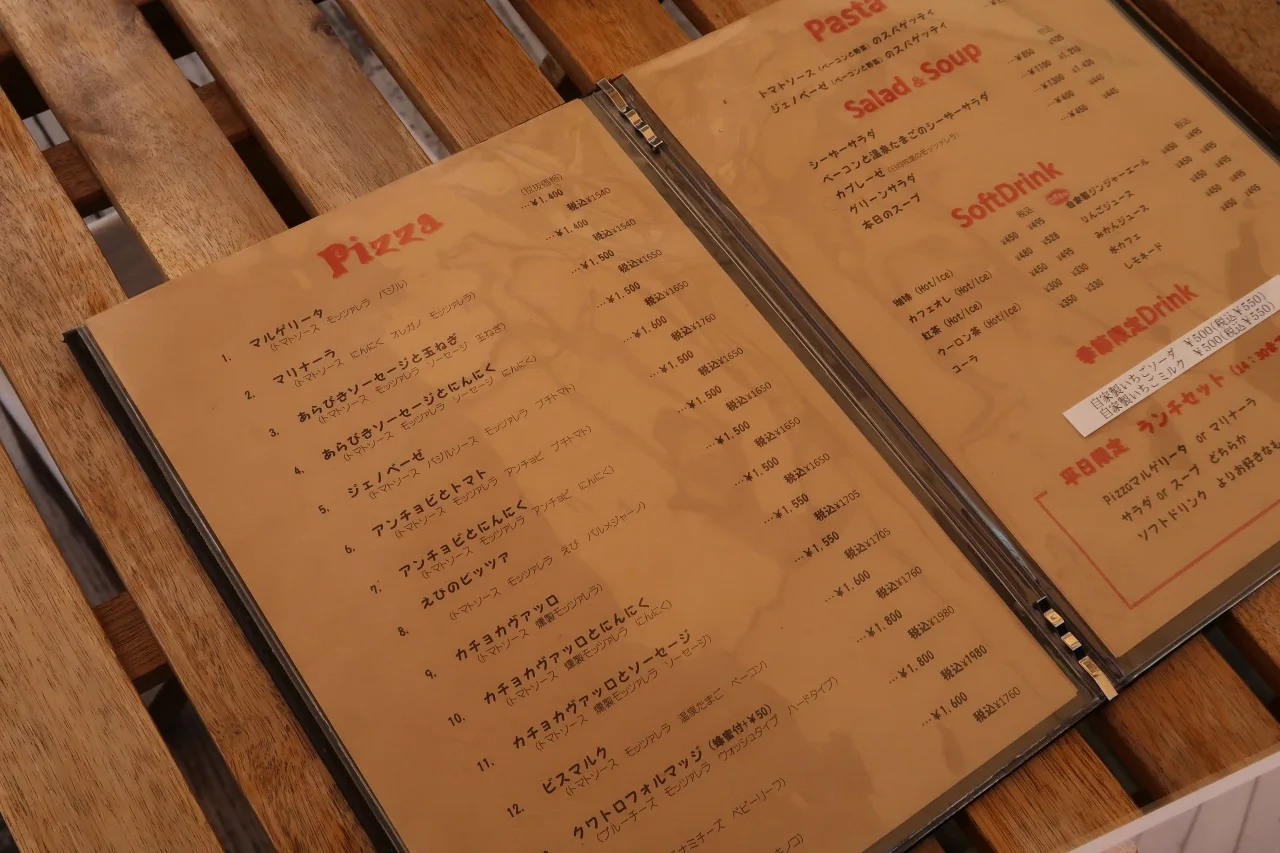 Pizza
(税抜価格)
1. マルゲリータ …¥1.400 税込¥1540
(トマトソース モッツァレラ バジル)
2. マリナーラ …¥1.400 税込¥1540
(トマトソース にんにく オレガノ モッツァレラ)
3. あらびきソーセージと玉ねぎ …¥1.500 税込¥1650
(トマトソース モッツァレラ ソーセージ 玉ねぎ)
4. あらびきソーセージとにんにく …¥1.500 税込¥1650
(トマトソース モッツァレラ ソーセージ にんにく)
5. ジェノベーゼ …¥1.600 税込¥1760
(トマトソース バジルソース モッツァレラ プチトマト)
6. アンチョビとトマト …¥1.500 税込¥1650
(トマトソース モッツァレラ アンチョビ プチトマト)
7. アンチョビとにんにく …¥1.500 税込¥1650
(トマトソース モッツァレラ アンチョビ にんにく)
8. えびのピッツァ …¥1.500 税込¥1650
(トマトソース モッツァレラ えび パルメジャーノ)
9. カチョカヴァッロ …¥1.500 税込¥1650
(トマトソース 燻製モッツァレラ)
10. カチョカヴァッロとにんにく …¥1.550 税込¥1705
(トマトソース 燻製モッツァレラ にんにく)
11. カチョカヴァッロとソーセージ …¥1.550 税込¥1705
(トマトソース 燻製モッツァレラ ソーセージ)
12. ビスマルク …¥1.600 税込¥1760
(トマトソース モッツァレラ 温泉たまご ベーコン)
クワトロフォルマッジ (蜂蜜付+¥50) …¥1.800 税込¥1980
(ブルーチーズ モッツァレラ ウォッシュタイプ ハードタイプ)
…¥1.800 税込¥1980
ナミチーズ ベビーリーフ)
…¥1.600 税込¥1760
キノコ)
Pasta
トマトソース (ベーコンと野菜) のスパゲッティ
ジェノベーゼ (ベーコンと野菜) のスパゲッティ
Salad & Soup
シーサーサラダ …¥850
ベーコンと温泉たまごのシーサーサラダ …¥1100 ¥1,210
カプレーゼ …¥1300 ¥1,430
グリーンサラダ …¥400 ¥440
本日のスープ …¥450 ¥495
SoftDrink
税込
珈琲 (Hot/Ice) ¥450 ¥495
カフェオレ (Hot/Ice) ¥480 ¥528
紅茶 (Hot/Ice) ¥450 ¥495
ウーロン茶 (Hot/Ice) ¥300 ¥330
コーラ ¥350
税込
自家製ジンジャーエール ¥450 ¥495
りんごジュース ¥450 ¥495
みかんジュース ¥450 ¥495
氷カフェ ¥450 ¥495
レモネード ¥450 ¥495
季節限定Drink
自家製いちごソーダ ¥500(税込¥550)
自家製いちごミルク ¥500(税込¥550)
平日限定 ランチセット
Pizzaマルゲリータ or マリナーラ
サラダ or スープ どちらか
ソフトドリンク よりお好きなも